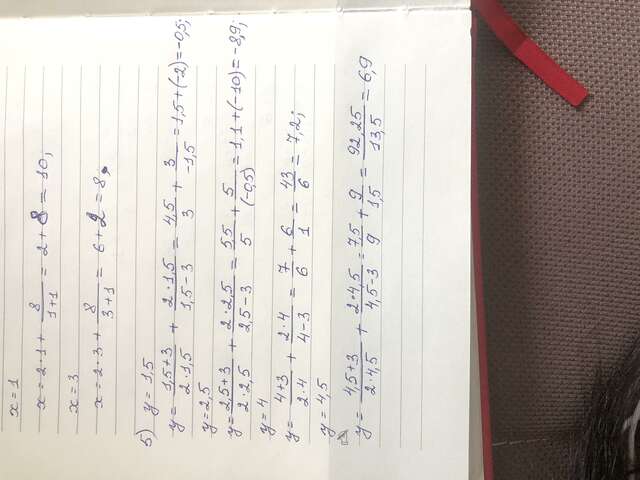 x=1
x=2·1+8/(1+1)=2+8=10;
x=3
x=2·3+8/(3+1)=6+2=8.
5) y=1,5
y=(1,5+3)/(2·1,5)+(2·1,5)/(1,5-3)=4,5/3+3/(-1,5)=1,5+(-2)=-0,5;
y=2,5
y=(2,5+3)/(2·2,5)+(2·2,5)/(2,5-3)=5,5/5+5/(-0,5)=1,1+(-10)=-8,9;
y=4
y=(4+3)/(2·4)+(2·4)/(4-3)=7/6+6/1=43/6=7,2;
y=4,5
y=(4,5+3)/(2·4,5)+(2·4,5)/(4,5-3)=7,5/9+9/1,5=92,25/13,5=6,9